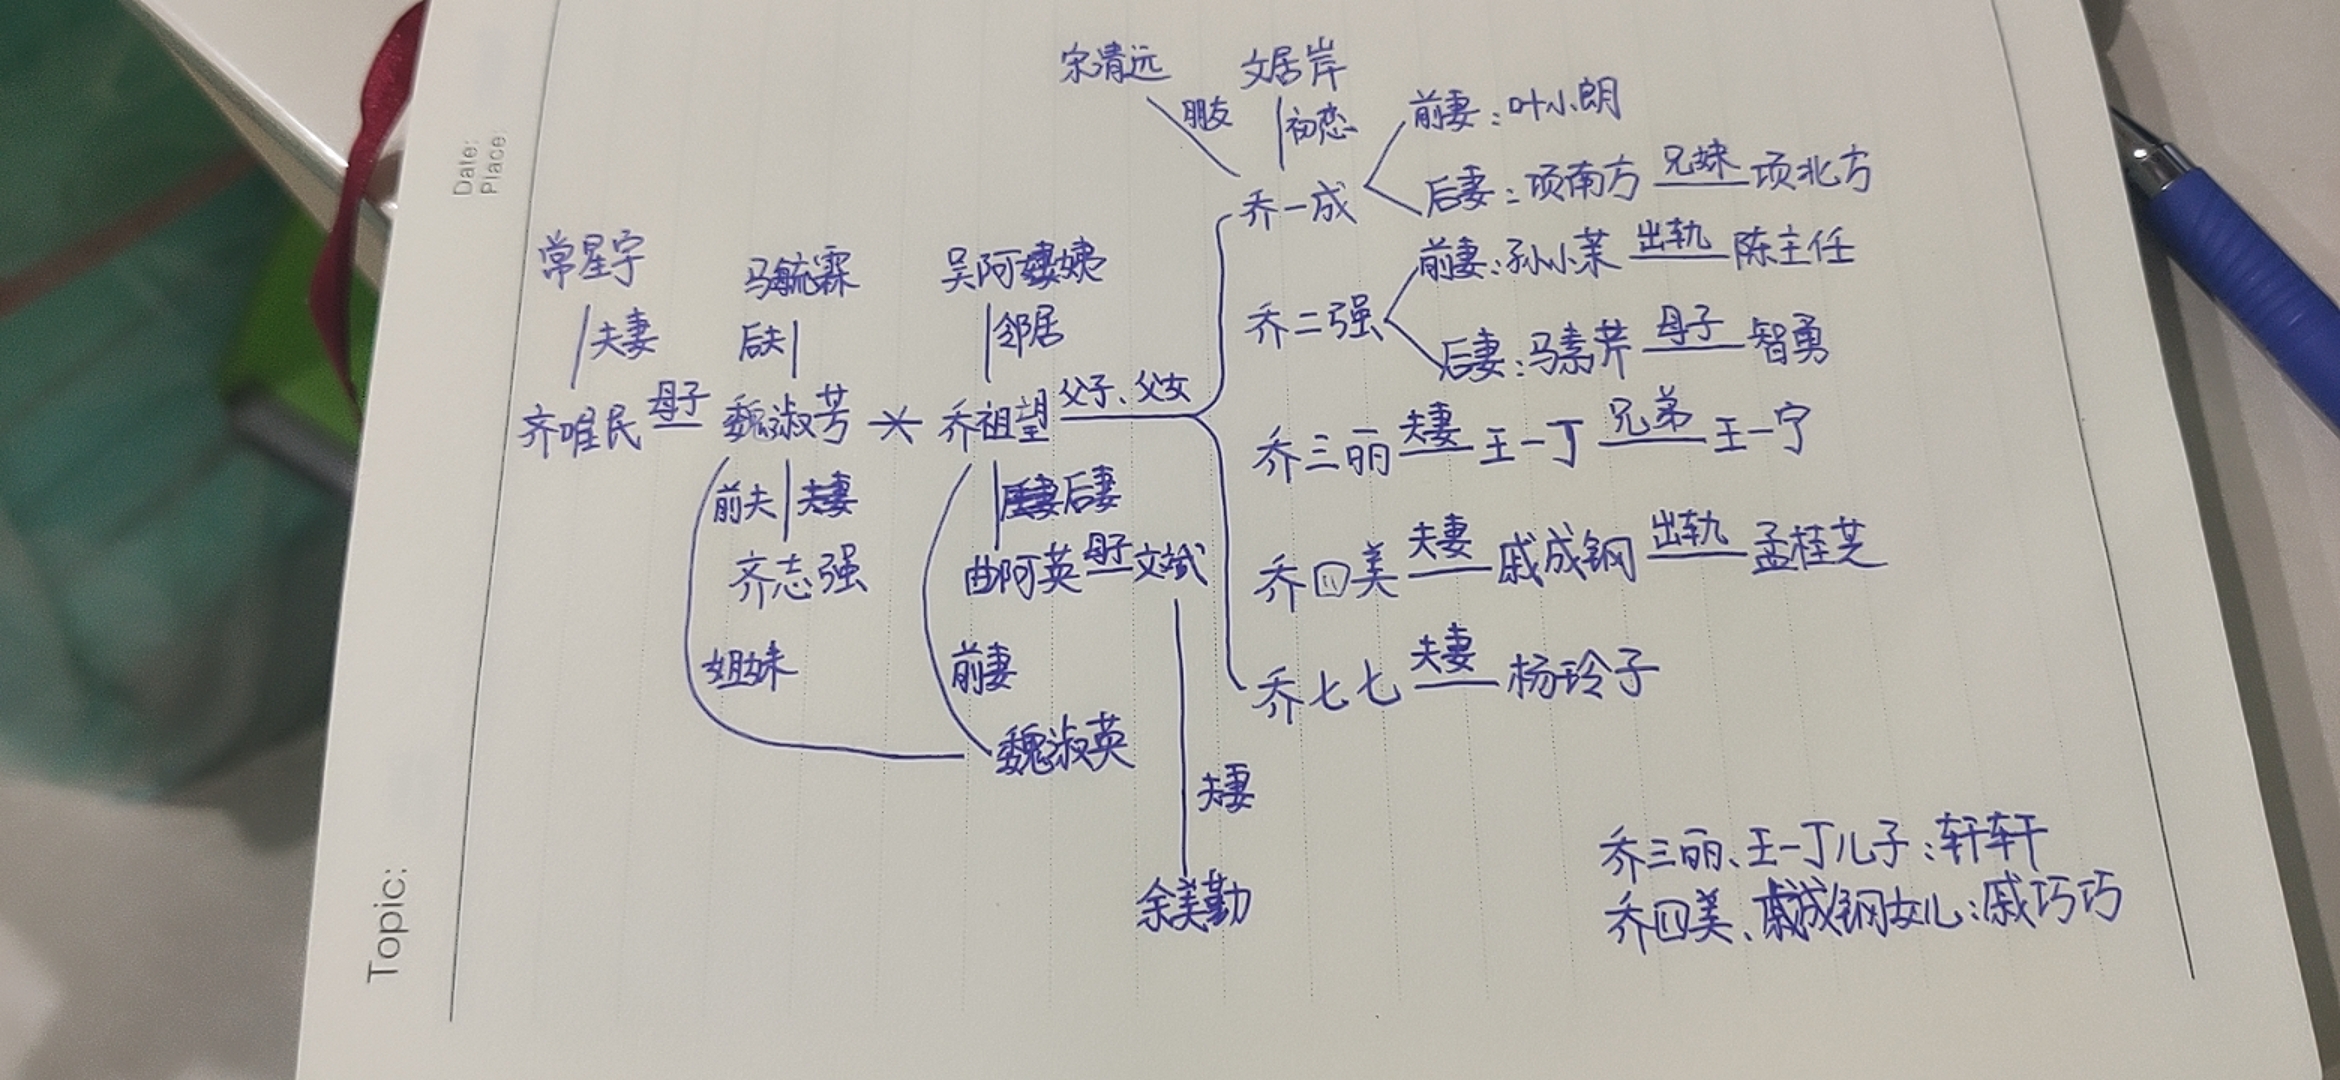 Date:
Place:
Topic:
宋清远 文居岸
朋友 初恋 前妻：叶小朗
乔一成 后妻：项南方 兄妹 项北方
常星宇 马毓霖 吴阿姨 前妻：孙小茉 出轨 陈主任
夫妻 后夫 邻居 乔二强
后妻：马素芹 母子 智勇
齐唯民 母子 魏淑芳 乔祖望 父子、父女
乔三丽 夫妻 王一丁 兄弟 王一宁
前夫 后妻
齐志强 曲阿英 母子 文斌 乔四美 夫妻 戚成钢 出轨 孟桂芝
姐妹 前妻 乔七七 夫妻 杨玲子
魏淑英
夫妻
余美勤
乔三丽、王一丁儿子：轩轩
乔四美、戚成钢女儿：戚巧巧